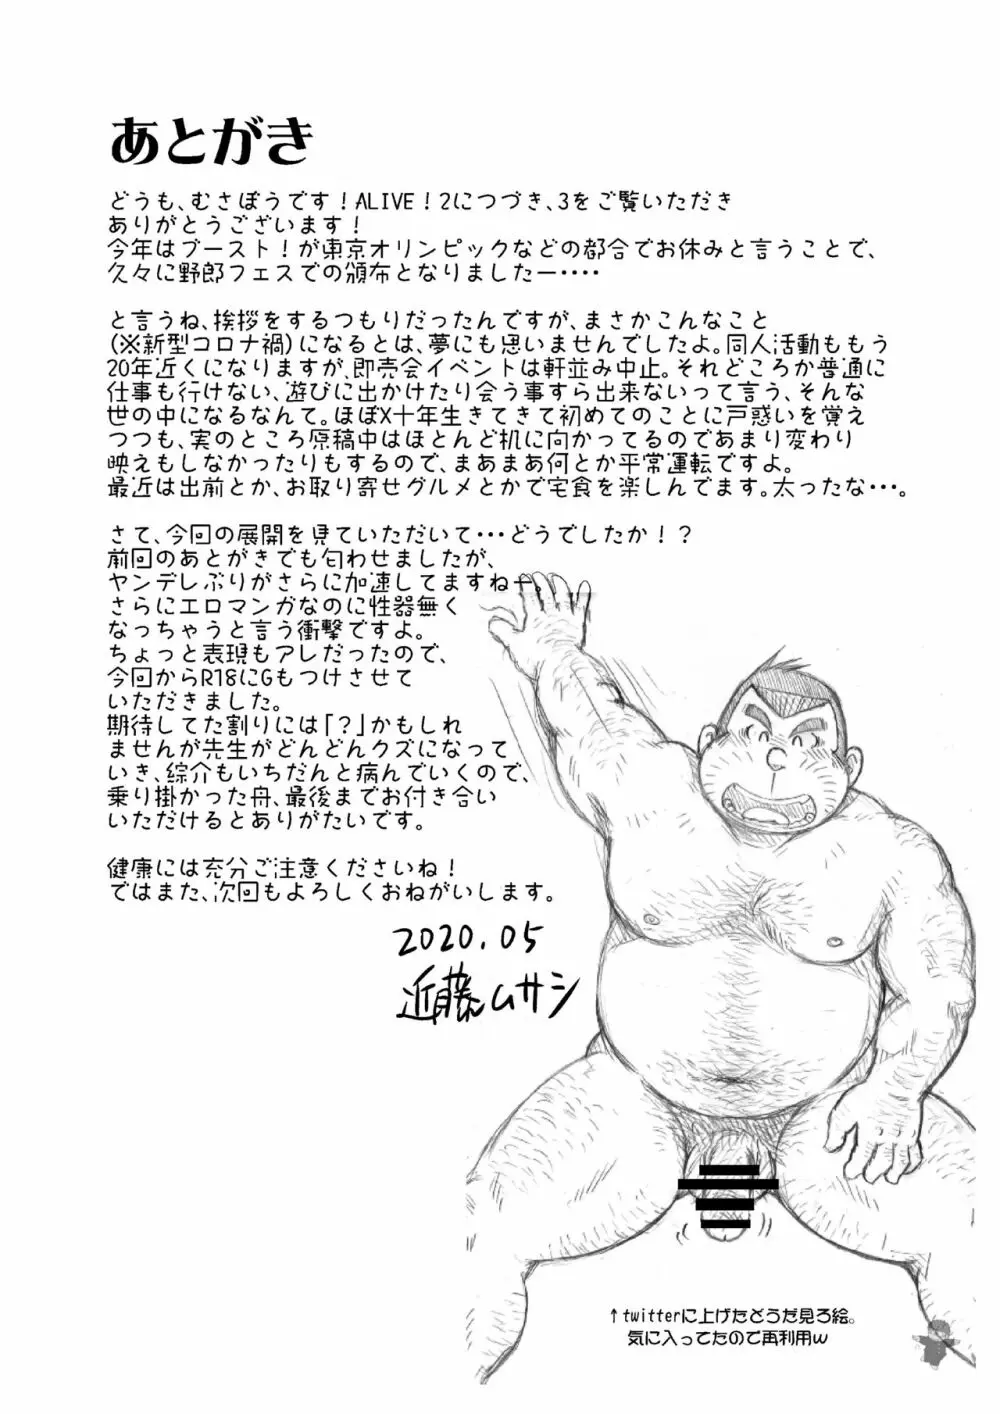 あとがき
どうも、むさぼうです！ALIVE！2につづき、3をご覧いただき
ありがとうございます！
今年はブースト！が東京オリンピックなどの都合でお休みと言うことで、
久々に野郎フェスでの頒布となりましたー・・・・
と言うね、挨拶をするつもりだったんですが、まさかこんなこと
(※新型コロナ禍)になるとは、夢にも思いませんでしたよ。同人活動ももう
20年近くになりますが、即売会イベントは軒並み中止。それどころか普通に
仕事も行けない、遊びに出かけたり会う事すら出来ないって言う、そんな
世の中になるなんて。ほぼX十年生きてきて初めてのことに戸惑いを覚え
つつも、実のところ原稿中はほとんど机に向かってるのであまり変わり
映えもしなかったりもするので、まあまあ何とか平常運転ですよ。
最近は出前とか、お取り寄せグルメとかで宅食を楽しんでます。太ったな・・・。
さて、今回の展開を見ていただいて・・・どうでしたか！？
前回のあとがきでも匂わせましたが、
ヤンデレぶりがさらに加速してますねー。
さらにエロマンガなのに性器無く
なっちゃうと言う衝撃ですよ。
ちょっと表現もアレだったので、
今回からR18にGもつけさせて
いただきました。
期待してた割りには「？」かもしれ
ませんが先生がどんどんクズになって
いき、綜介もいちだんと病んでいくので、
乗り掛かった舟、最後までお付き合い
いただけるとありがたいです。
健康には充分ご注意くださいね！
ではまた、次回もよろしくおねがいします。
2020.05
近藤ムサシ
↑twitterに上げたどうだ見ろ絵。
気に入ってたので再利用w